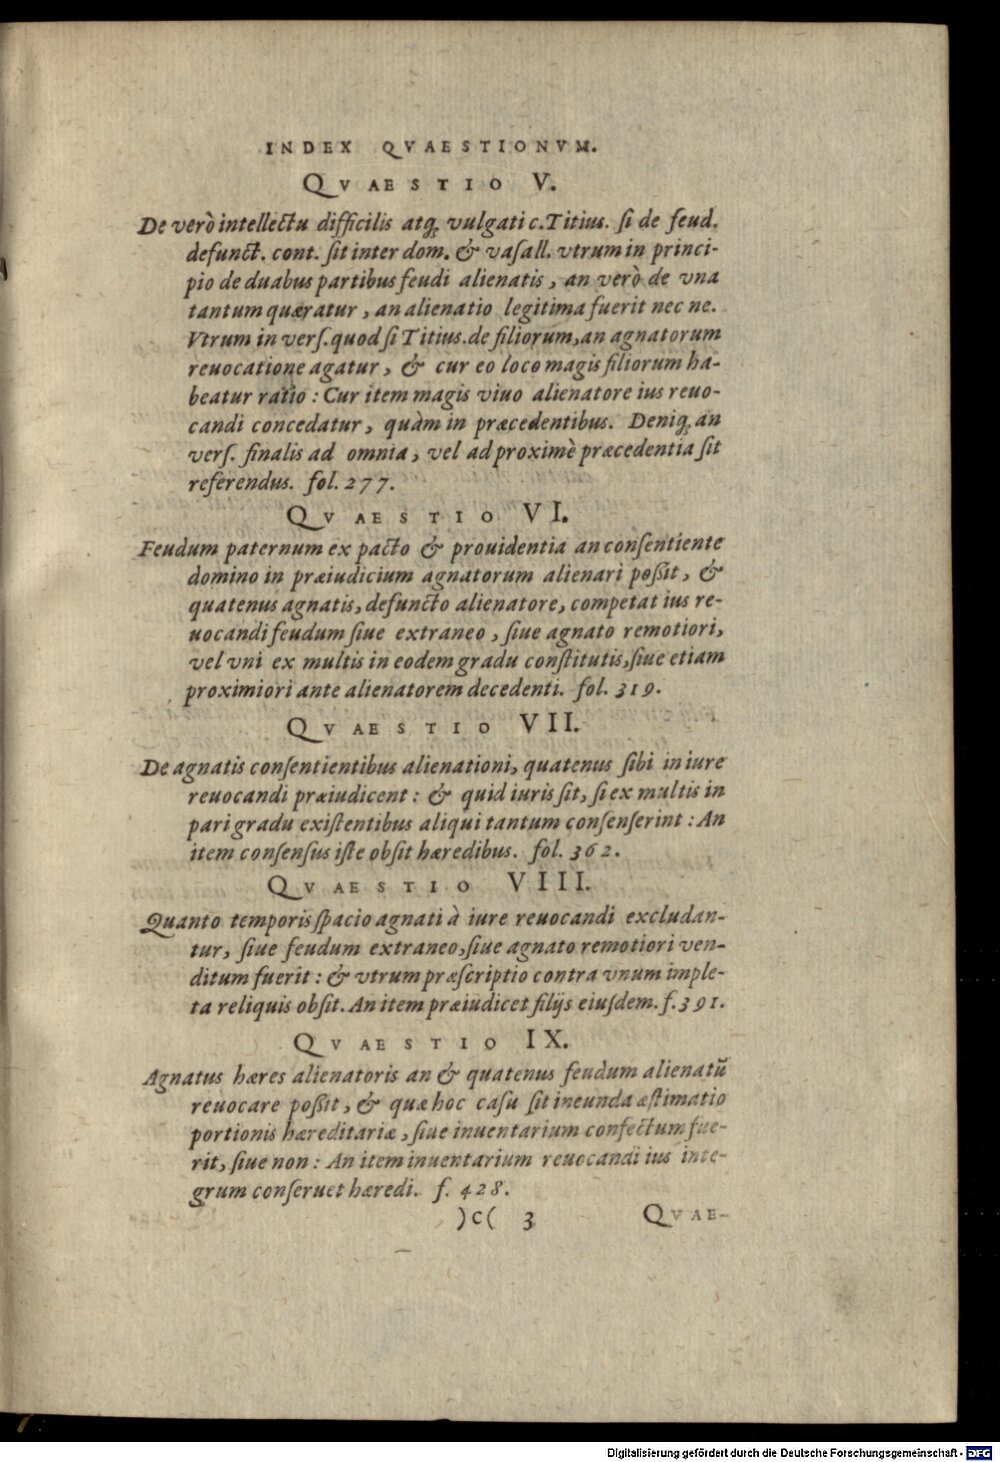 INDEX QVAESTIONVM.
QVAESTIO V.
De verò intellectu difficilis atq; vulgati c. Titius. ſi de feud.
defunct. cont. ſit inter dom. & vaſall. vtrum in princi-
pio de duabus partibus feudi alienatis, an verò de vna
tantum quæratur, an alienatio legitima fuerit nec ne.
Vtrum in verſ. quod ſi Titius. de filiorum, an agnatorum
reuocatione agatur, & cur eo loco magis filiorum ha-
beatur ratio: Cur item magis viuo alienatore ius reuo-
candi concedatur, quàm in præcedentibus. Deniq; an
verſ. finalis ad omnia, vel ad proximè præcedentia ſit
referendus. fol. 277.
QVAESTIO VI.
Feudum paternum ex pacto & prouidentia an conſentiente
domino in præiudicium agnatorum alienari poßit, &
quatenus agnatis, defuncto alienatore, competat ius re-
uocandi feudum ſiue extraneo, ſiue agnato remotiori,
vel vni ex multis in eodem gradu conſtitutis, ſiue etiam
proximiori ante alienatorem decedenti. fol. 319.
QVAESTIO VII.
De agnatis conſentientibus alienationi, quatenus ſibi in iure
reuocandi præiudicent: & quid iuris ſit, ſi ex multis in
pari gradu exiſtentibus aliqui tantum conſenſerint: An
item conſenſus iſte obſit hæredibus. fol. 362.
QVAESTIO VIII.
Quanto temporis ſpacio agnati à iure reuocandi excludan-
tur, ſiue feudum extraneo, ſiue agnato remotiori ven-
ditum fuerit: & vtrum præſcriptio contra vnum imple-
ta reliquis obſit. An item præiudicet filijs eiuſdem. f. 391.
QVAESTIO IX.
Agnatus hæres alienatoris an & quatenus feudum alienatũ
reuocare poßit, & quæ hoc caſu ſit ineunda æſtimatio
portionis hæreditariæ, ſiue inuentarium confectum fue-
rit, ſiue non: An item inuentarium reuocandi ius inte-
grum conſeruet hæredi. f. 428.
)C( 3 QVAE-
Digitalisierung gefördert durch die Deutsche Forschungsgemeinschaft - DFG